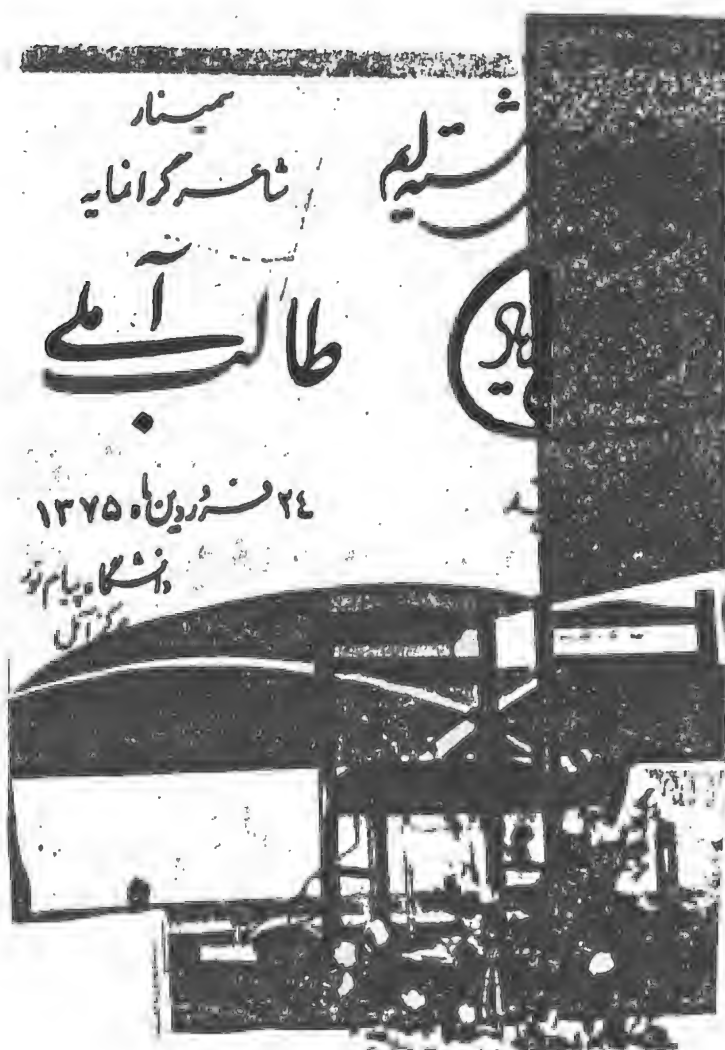 سمینار
شاعر گرانمایه
طالب آملی
٢٤ فروردین ماه ١٣٧٥
دانشگاه پیام نور
مرکز آمل